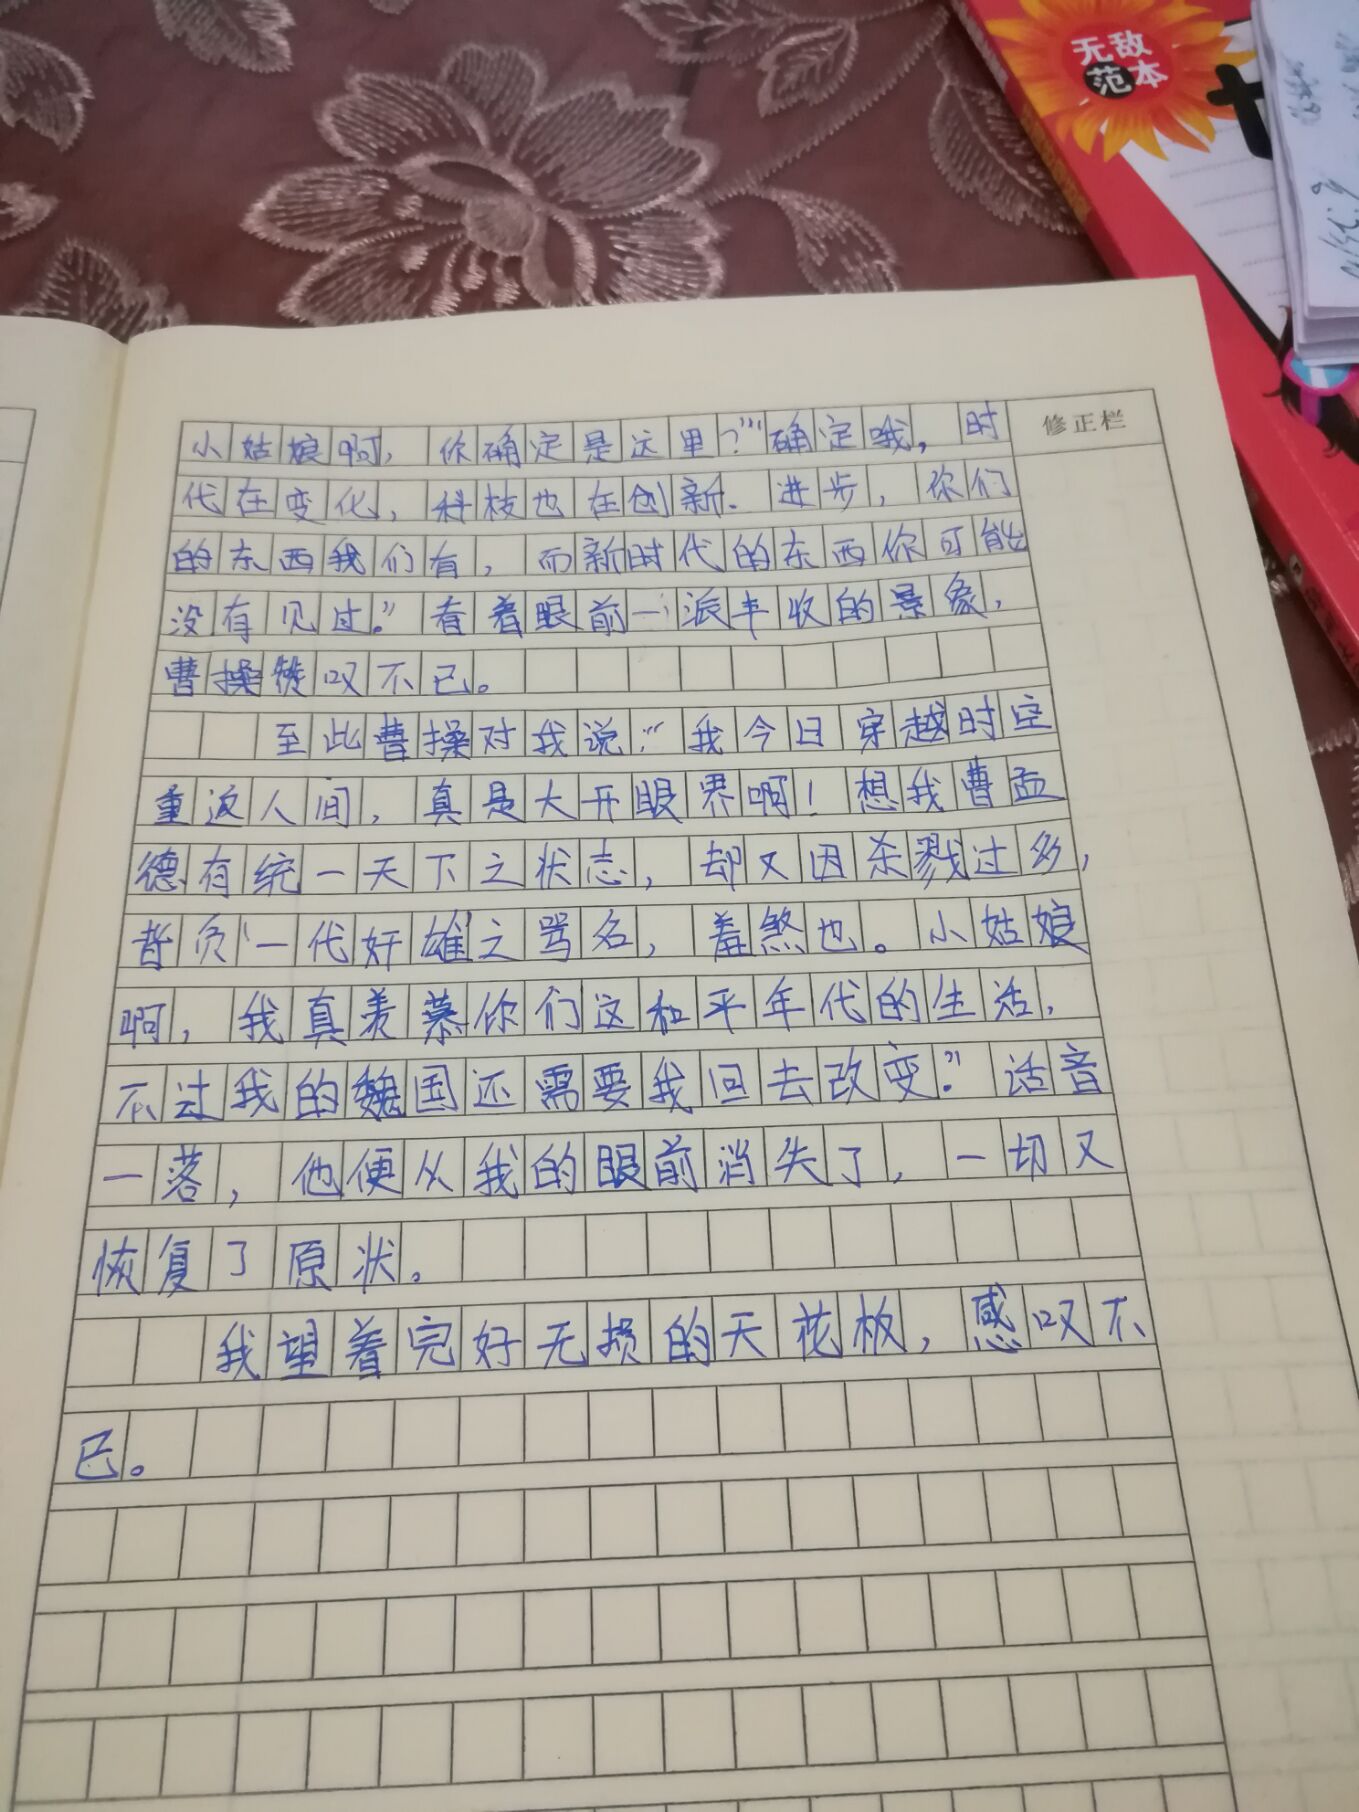 无敌
范本
修正栏
小姑娘啊，你确定是这里？”“确定哦，时
代在变化，科枝也在创新．进步，你们
的东西我们有，而新时代的东西你可能
没有见过。”看着眼前一派丰收的景象，
曹操赞叹不已。
至此曹操对我说：“我今日穿越时空
重返人间，真是大开眼界啊！想我曹孟
德有统一天下之状志，却又因杀戮过多，
背负“一代奸雄”之骂名，羞煞也。小姑娘
啊，我真羡慕你们这和平年代的生活，
不过我的魏国还需要我回去改变。”话音
一落，他便从我的眼前消失了，一切又
恢复了原状。
我望着完好无损的天花板，感叹不
已。